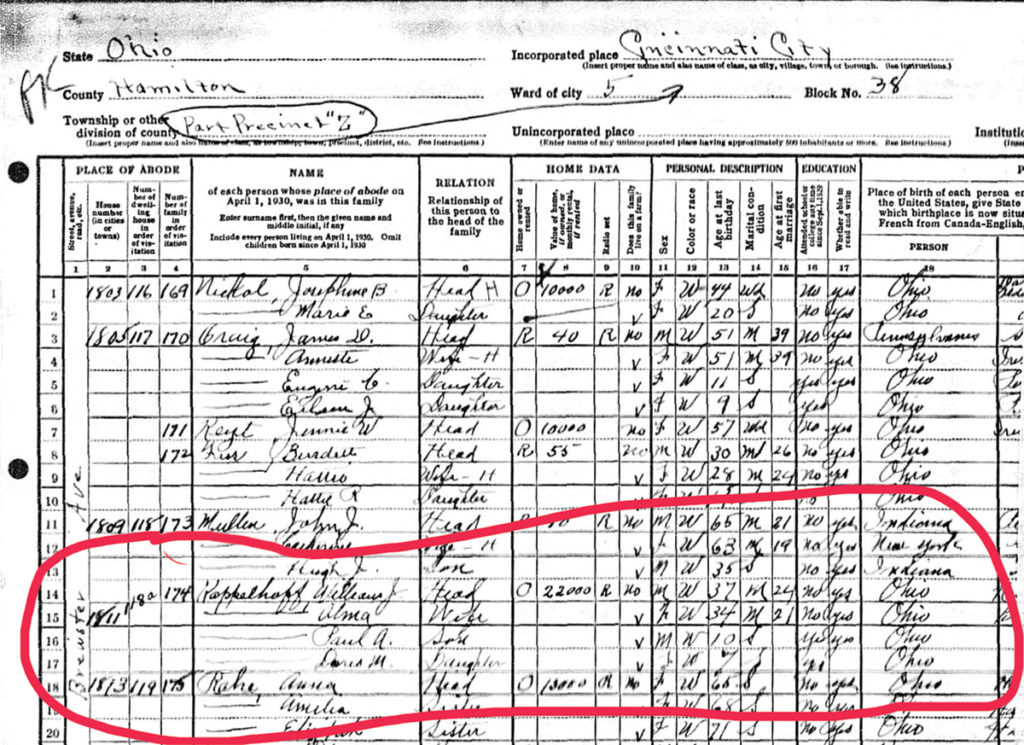 State Ohio
Incorporated place Cincinnati City
(Insert proper name and also name of class, as city, village, town, or borough. See instructions.)
County Hamilton
Ward of city 5
Block No. 38
Township or other
division of county Part Precinct "Z"
Unincorporated place
(Enter name of any unincorporated place having approximately 500 inhabitants or more. See instructions.)
Instituti
PLACE OF ABODE
NAME
of each person whose place of abode on
April 1, 1930, was in this family
Enter surname first, then the given name and
middle initial, if any
Include every person living on April 1, 1930. Omit
children born since April 1, 1930
RELATION
Relationship of
this person to
the head of the
family
HOME DATA
PERSONAL DESCRIPTION
EDUCATION
Place of birth of each person en
the United States, give State
which birthplace is now situ
French from Canada-English,
PERSON
Street, avenue, road, etc.
House number (in cities or towns)
Number of dwelling house in order of visitation
Number of family in order of visitation
Home owned or rented
Value of home, if owned, or monthly rental, if rented
Radio set
Does this family live on a farm?
Sex
Color or race
Age at last birthday
Marital condition
Age at first marriage
Attended school or college any time since Sept. 1, 1929
Whether able to read and write
1 2 3 4 5 6 7 8 9 10 11 12 13 14 15 16 17 18
1 1803 116 169 Nickol, Josephine B. Head H O 10000 R no F W 44 Wd no yes Ohio
2 Marie E Daughter v F W 20 S no yes Ohio
3 1805 117 170 Craig, James D. Head R 40 R no M W 51 M 39 no yes Pennsylvania
4 Wife-H v F W 51 M 39 no yes Ohio
5 Eugene C. Daughter v F W 11 S yes yes Ohio
6 Eileen J. Daughter v F W 9 S yes Ohio
7 171 Jennie W Head O 10000 no F W 57 Wd no yes Ohio
8 172 Burdett Head R 55 no M W 30 M 26 no yes Ohio
9 Wife-H v F W 28 M 24 no yes Ohio
10 Hattie R Daughter no Ohio
11 1809 118 173 Mullen, John J. Head R R no M W 65 M 21 no yes Indiana
12 Catherine Wife-H v F W 63 M 19 no yes New York
13 Hugh J. Son v M W 35 S no yes Indiana
14 118a 174 Kappelhoff William J Head O 22000 R no M W 37 M 24 no yes Ohio
15 1811 Alma Wife v F W 34 M 21 no yes Ohio
16 Paul A. Son v M W 10 S yes yes Ohio
17 Doris M. Daughter v F W 7 S yes Ohio
18 1813 119 175 Rahe, Anna Head O 13000 R no F W 65 S no yes Ohio
19 Amelia Sister v F W 68 S no yes
20 Elizabeth Sister v F W 71 S no yes Ohio
Brewster Ave